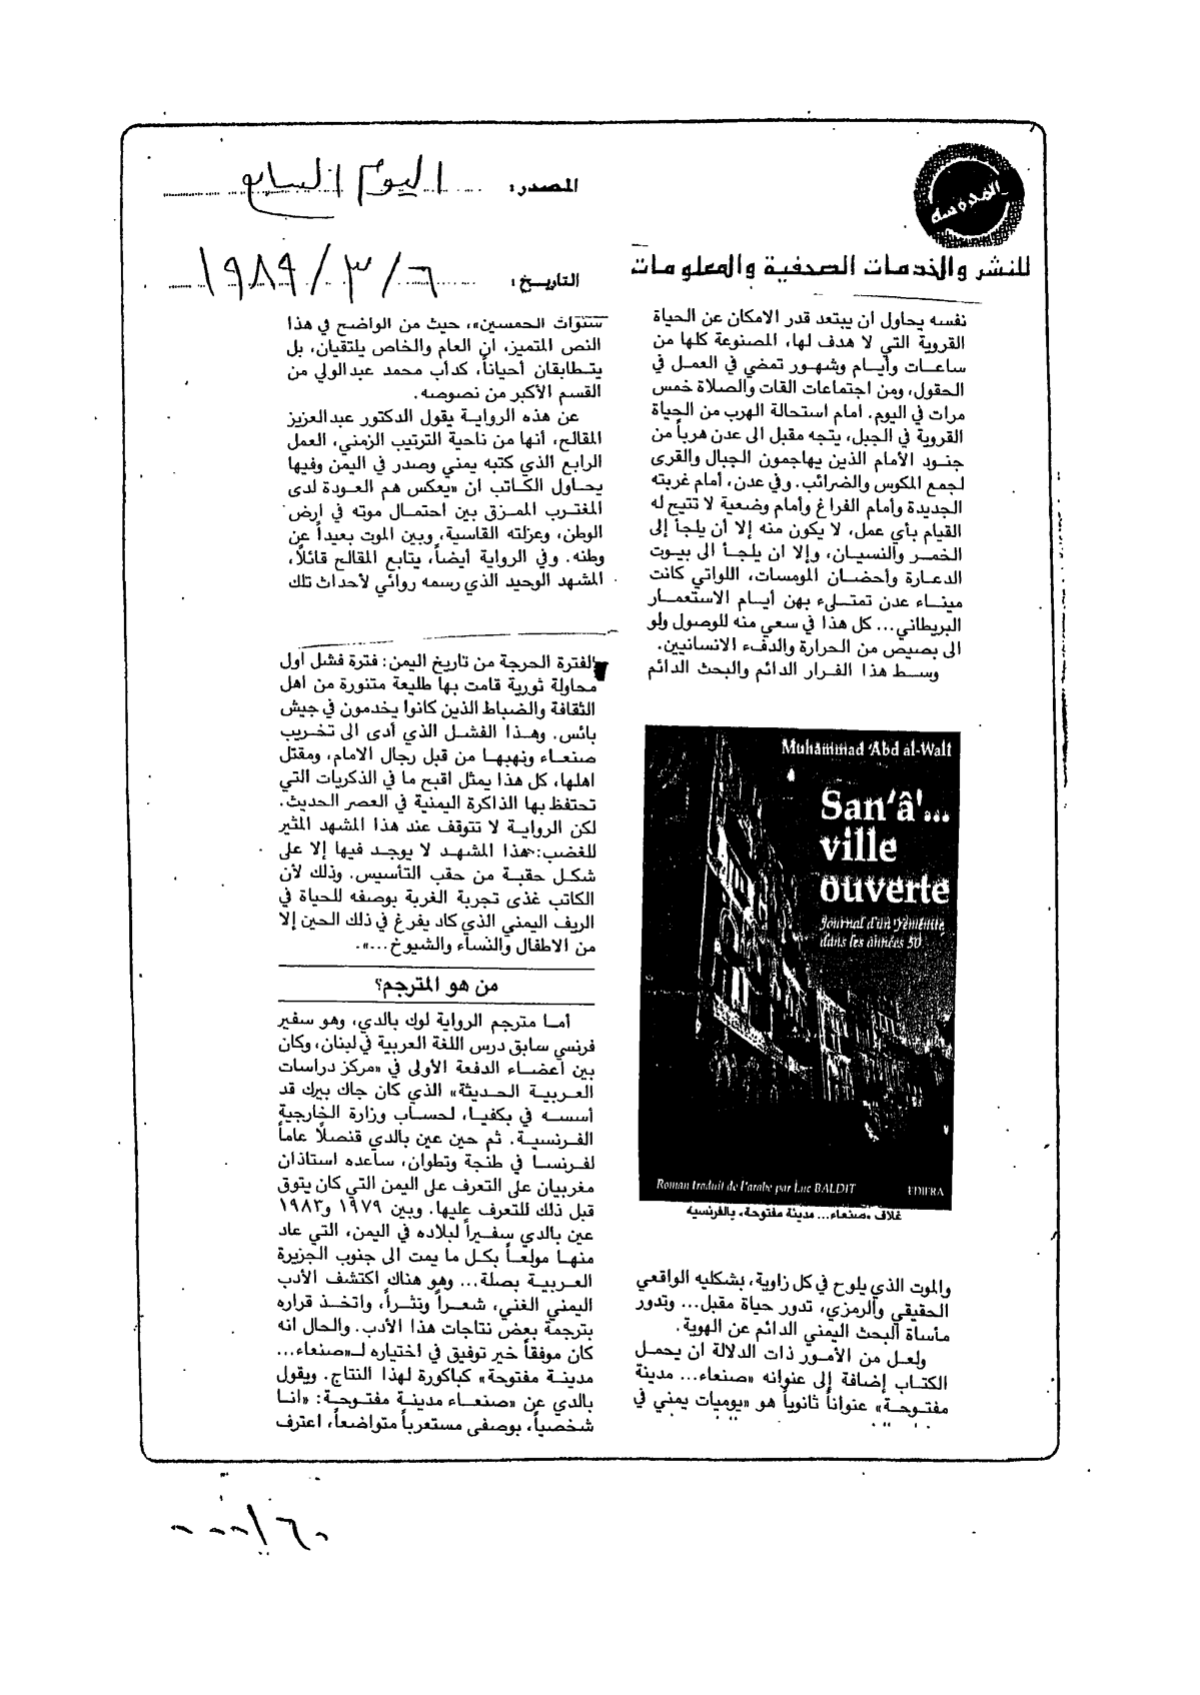 المدوسه
للنشر والخدمات الصحفية والمعلومات
المصدر: اليوم السابع
التاريخ: ٦/٣/١٩٨٩
نفسه يحاول ان يبتعد قدر الامكان عن الحياة
القروية التي لا هدف لها، المصنوعة كلها من
ساعات وأيام وشهور تمضي في العمل في
الحقول، ومن اجتماعات القات والصلاة خمس
مرات في اليوم. أمام استحالة الهرب من الحياة
القروية في الجبل، يتجه مقبل الى عدن هرباً من
جنود الأمام الذين يهاجمون الجبال والقرى
لجمع المكوس والضرائب. وفي عدن، أمام غربته
الجديدة وأمام الفراغ وأمام وضعية لا تتيح له
القيام بأي عمل، لا يكون منه إلا أن يلجأ إلى
الخمر والنسيان، وإلا ان يلجأ الى بيوت
الدعارة وأحضان المومسات، اللواتي كانت
ميناء عدن تمتلىء بهن أيام الاستعمار
البريطاني... كل هذا في سعي منه للوصول ولو
الى بصيص من الحرارة والدفء الانسانيين.
وسط هذا الفرار الدائم والبحث الدائم
Muhammad 'Abd al-Walî
San'â'...
ville
ouverte
Journal d'un Yéménite
dans les années 50
Roman traduit de l'arabe par Luc BALDIT
EDIFRA
غلاف «صنعاء... مدينة مفتوحة» بالفرنسية
والموت الذي يلوح في كل زاوية، بشكليه الواقعي
الحقيقي والرمزي، تدور حياة مقبل... وتدور
مأساة البحث اليمني الدائم عن الهوية.
ولعل من الأمور ذات الدلالة ان يحمل
الكتاب إضافة إلى عنوانه «صنعاء... مدينة
مفتوحة» عنواناً ثانوياً هو «يوميات يمني في
سنوات الخمسين»، حيث من الواضح في هذا
النص المتميز، ان العام والخاص يلتقيان، بل
يتطابقان أحياناً، كدأب محمد عبد الولي من
القسم الأكبر من نصوصه.
عن هذه الرواية يقول الدكتور عبد العزيز
المقالح، أنها من ناحية الترتيب الزمني، العمل
الرابع الذي كتبه يمني وصدر في اليمن وفيها
يحاول الكاتب ان «يعكس هم العودة لدى
المغترب الممزق بين احتمال موته في ارض
الوطن، وعزلته القاسية، وبين الموت بعيداً عن
وطنه. وفي الرواية أيضاً، يتابع المقالح قائلاً،
المشهد الوحيد الذي رسمه روائي لأحداث تلك
الفترة الحرجة من تاريخ اليمن: فترة فشل اول
محاولة ثورية قامت بها طليعة متنورة من اهل
الثقافة والضباط الذين كانوا يخدمون في جيش
بائس. وهذا الفشل الذي أدى الى تخريب
صنعاء ونهبها من قبل رجال الامام، ومقتل
اهلها، كل هذا يمثل اقبح ما في الذكريات التي
تحتفظ بها الذاكرة اليمنية في العصر الحديث.
لكن الرواية لا تتوقف عند هذا المشهد المثير
للغضب: «هذا المشهد لا يوجد فيها إلا على
شكل حقبة من حقب التأسيس. وذلك لأن
الكاتب غذى تجربة الغربة بوصفه للحياة في
الريف اليمني الذي كاد يفرغ في ذلك الحين إلا
من الاطفال والنساء والشيوخ...».
من هو المترجم؟
أما مترجم الرواية لوك بالدي، وهو سفير
فرنسي سابق درس اللغة العربية في لبنان، وكان
بين اعضاء الدفعة الأولى في «مركز دراسات
العربية الحديثة» الذي كان جاك بيرك قد
أسسه في بكفيا، لحساب وزارة الخارجية
الفرنسية. ثم حين عين بالدي قنصلاً عاماً
لفرنسا في طنجة وتطوان، ساعده استاذان
مغربيان على التعرف على اليمن التي كان يتوق
قبل ذلك للتعرف عليها. وبين ١٩٧٩ و١٩٨٣
عين بالدي سفيراً لبلاده في اليمن، التي عاد
منها مولعاً بكل ما يمت الى جنوب الجزيرة
العربية بصلة... وهو هناك اكتشف الأدب
اليمني الغني، شعراً ونثراً، واتخذ قراره
بترجمة بعض نتاجات هذا الأدب. والحال انه
كان موفقاً خير توفيق في اختياره لـ«صنعاء...
مدينة مفتوحة» كباكورة لهذا النتاج. ويقول
بالدي عن «صنعاء مدينة مفتوحة: «انا
شخصياً، بوصفي مستعرباً متواضعاً، اعترف